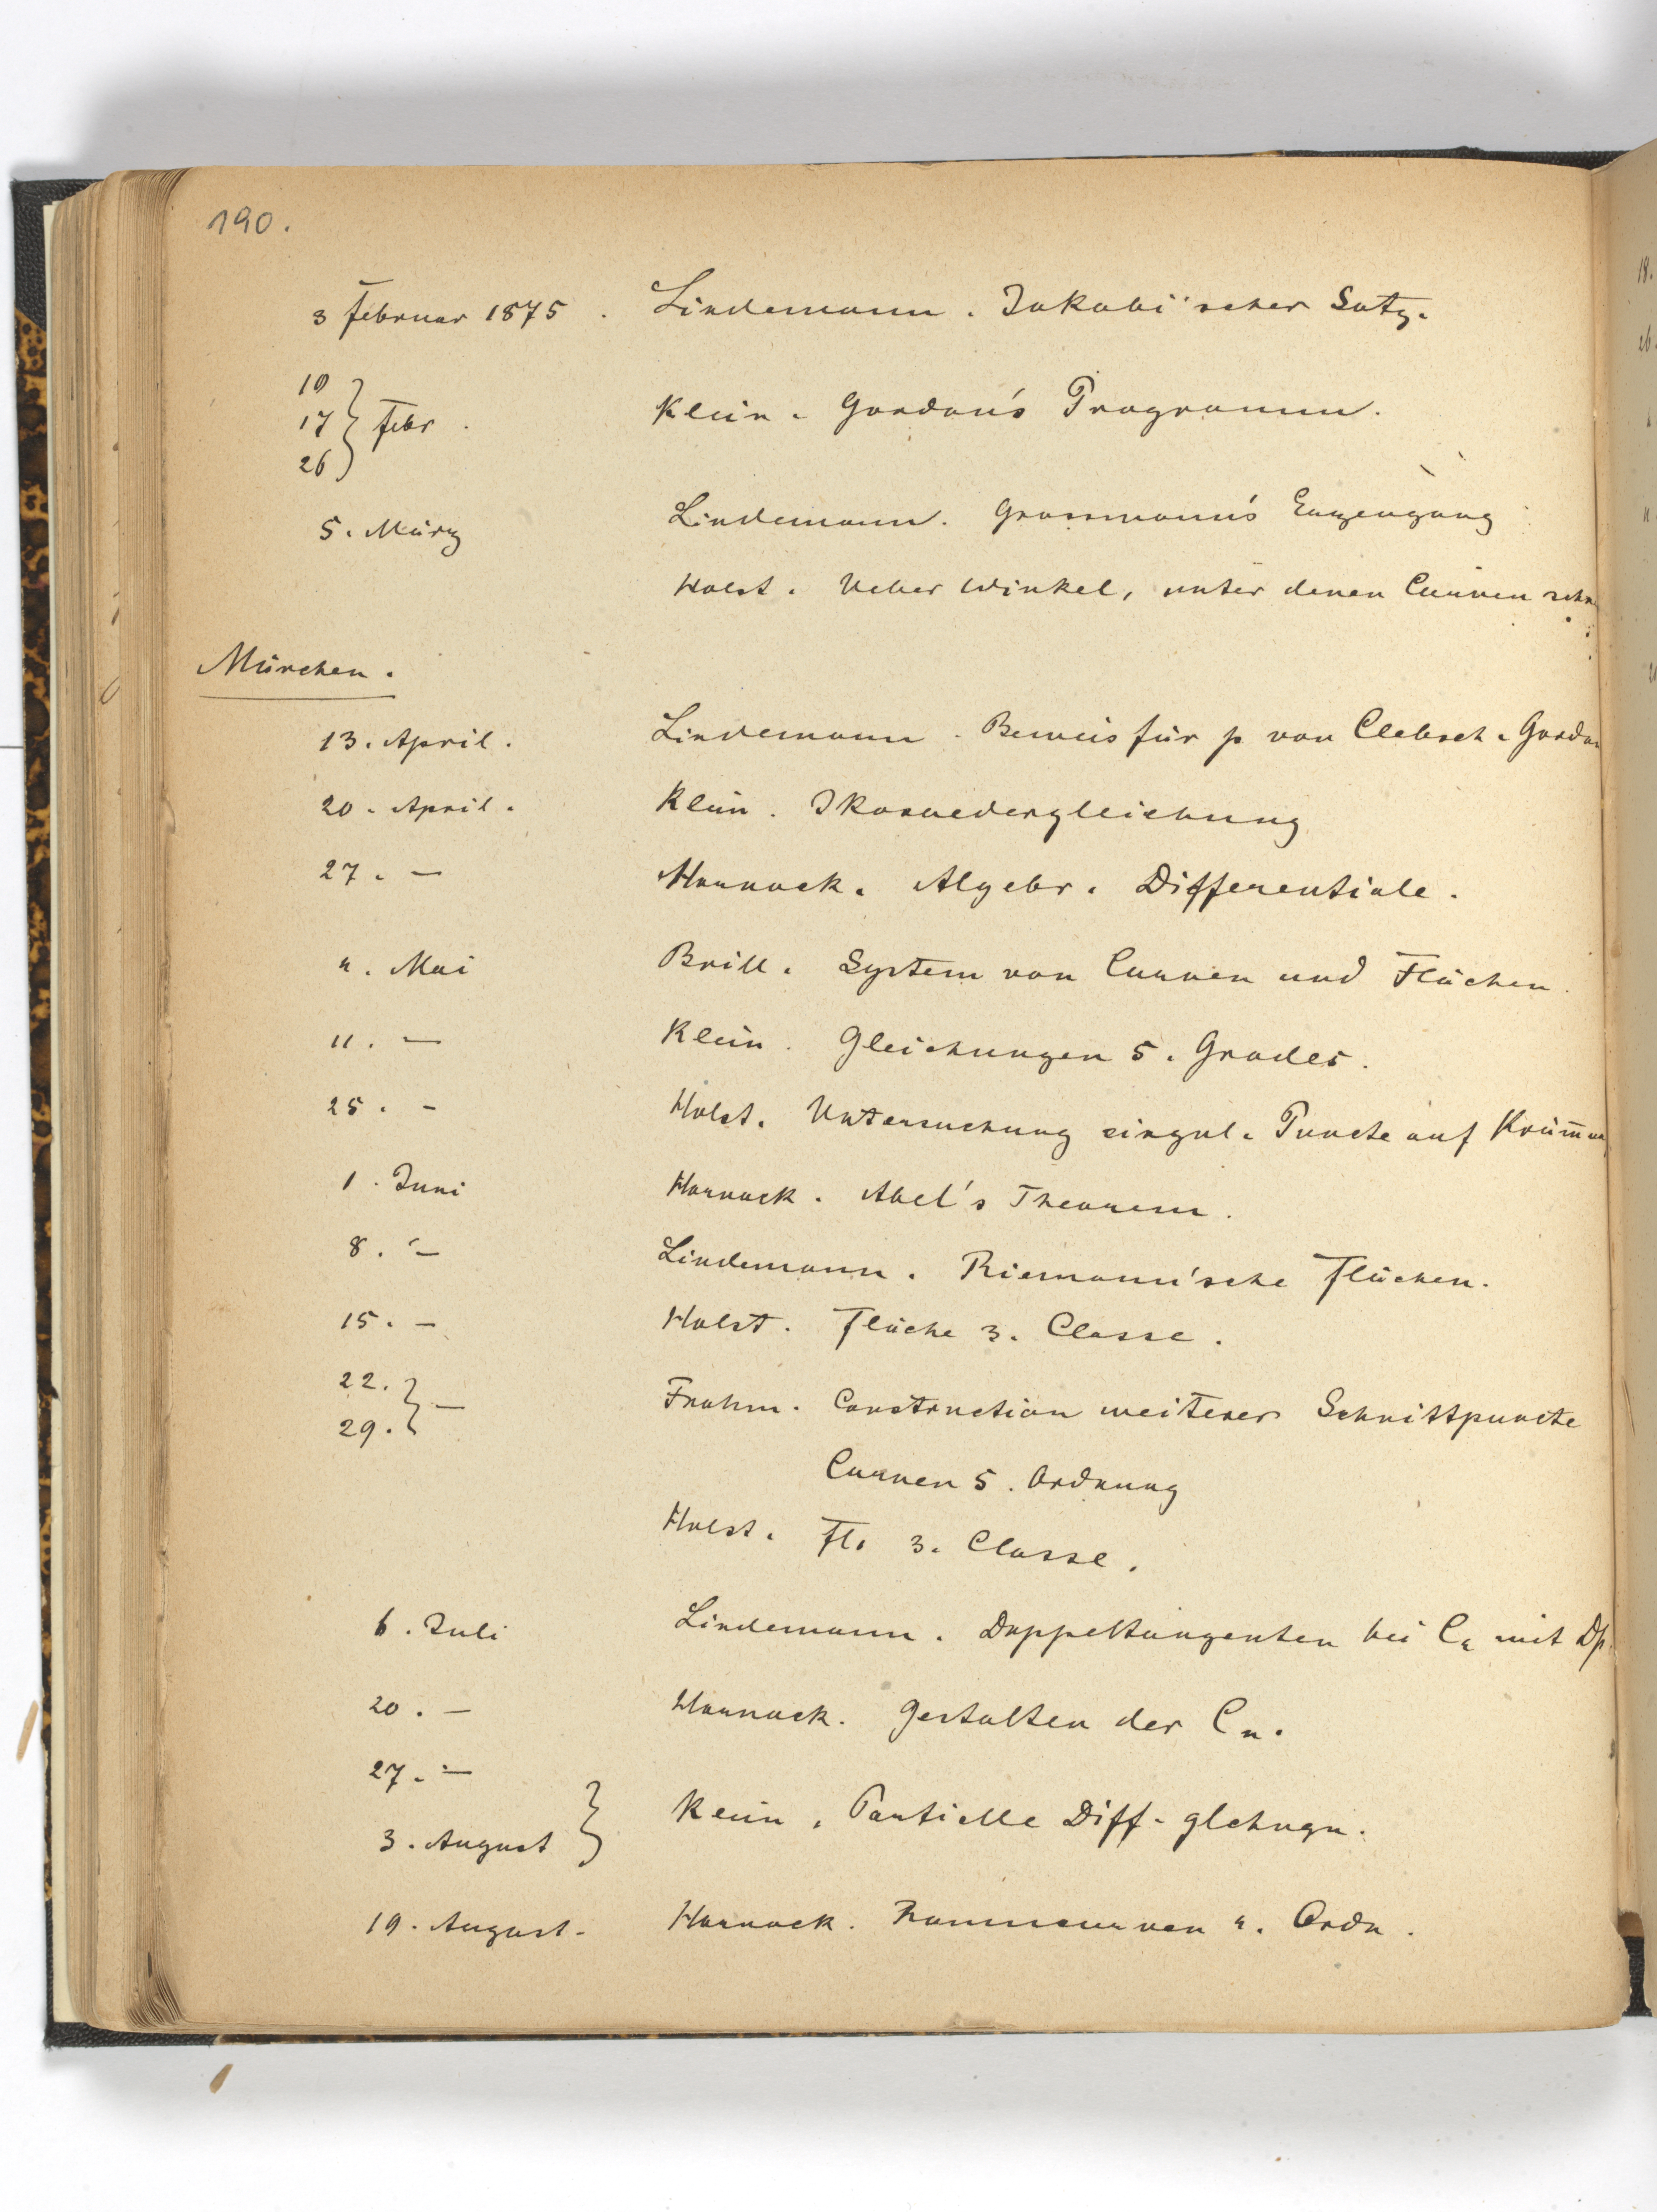 190.
3 Februar 1875. Lindemann. Jakobi'scher Satz.
10
17 Febr. Klein. Gordan's Programm.
26
5. März Lindemann. Grassmann's Erzeugung
Holst. Ueber Winkel, unter denen Curven
München.
13. April. Lindemann. Beweis für p von Clebsch-Gordan
20. April. Klein. Ikosaedergleichung
27. — Harnack. Algebr. Differentiale.
4. Mai Brill. System von Curven und Flächen.
11. — Klein. Gleichungen 5. Grades.
25. - Holst. Untersuchung singul. Puncte auf
1. Juni Harnack. Abel's Theorem.
8. — Lindemann. Riemann'sche Flächen.
15. — Holst. Fläche 3. Classe.
22.
29. — Frahm. Construction weiterer Schnittpuncte
Curven 5. Ordnung
Holst. Fl. 3. Classe.
6. Juli Lindemann. Doppeltangenten bei C₄ mit Dp.
20. — Harnack. Gestalten der Cₙ.
27. —
3. August Klein. Partielle Diff-glchngn.
19. August. Harnack. Raumcurven 4. Ordn.